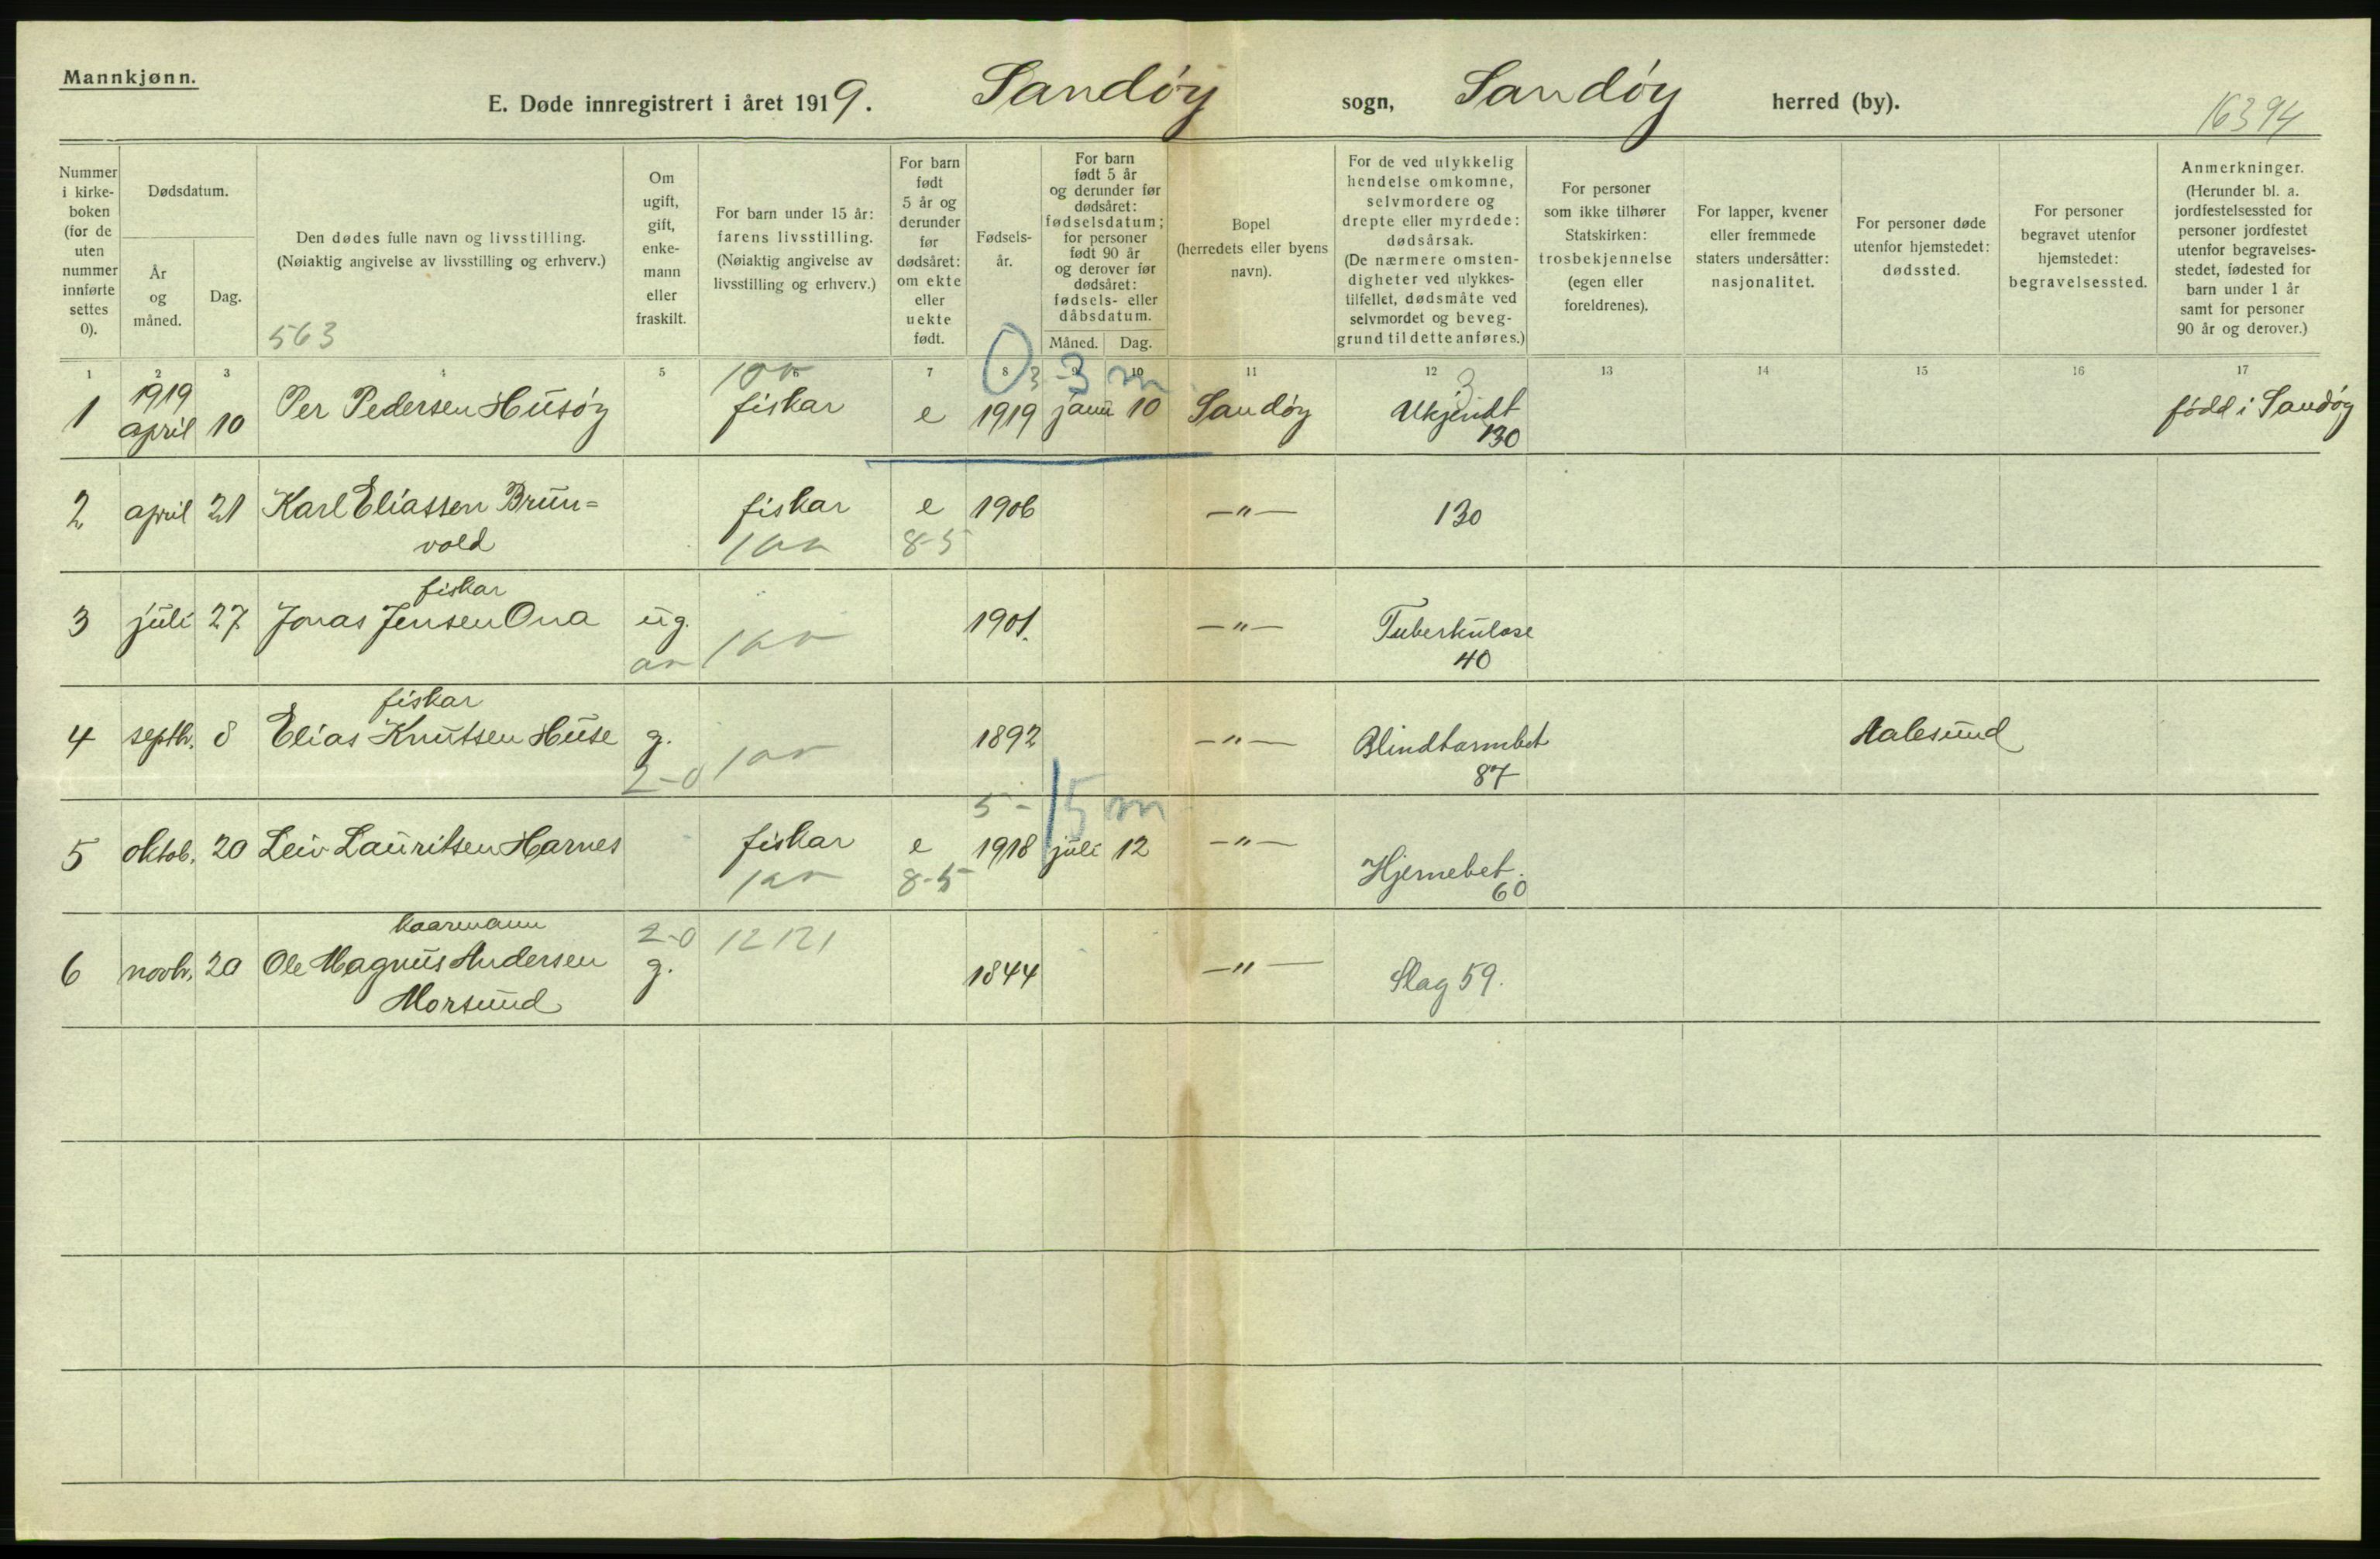 Mannkjønn.
E. Døde innregistrert i året 1919. Sandöy sogn, Sandöy herred (by).
16394
Nummer i kirke-boken (for de uten nummer innførte settes 0).
Dødsdatum.
År og måned.
Dag.
Den dødes fulle navn og livsstilling.
(Nøiaktig angivelse av livsstilling og erhverv.)
563
Om ugift, gift, enke-mann eller fraskilt.
For barn under 15 år: farens livsstilling. (Nøiaktig angivelse av livsstilling og erhverv.)
For barn født 5 år og derunder før dødsåret: om ekte eller uekte født.
Fødsels-år.
For barn født 5 år og derunder før dødsåret: fødselsdatum; for personer født 90 år og derover før dødsåret: fødsels- eller dåbsdatum.
Måned. Dag.
Bopel (herredets eller byens navn).
For de ved ulykkelig hendelse omkomne, selvmordere og drepte eller myrdede: dødsårsak. (De nærmere omsten-digheter ved ulykkes-tilfellet, dødsmåte ved selvmordet og beveg-grund til dette anføres.)
For personer som ikke tilhører Statskirken: trosbekjennelse (egen eller foreldrenes).
For lapper, kvener eller fremmede staters undersåtter: nasjonalitet.
For personer døde utenfor hjemstedet: dødssted.
For personer begravet utenfor hjemstedet: begravelsessted.
Anmerkninger. (Herunder bl. a. jordfestelsessted for personer jordfestet utenfor begravelses-stedet, fødested for barn under 1 år samt for personer 90 år og derover.)
1 2 3 4 5 6 7 8 9 10 11 12 13 14 15 16 17
0 3 3 m 3
1 1919 april 10 Per Pedersen Husöy fiskar e 1919 janu 10 Sandöy Ukjendt 130 född i Sandöy
2 april 21 Karl Eliassen Brun=
vold fiskar e 1906 —"— 130
8-5
fiskar
3 juli 27 Jonas Jensen Ona ug. 1901. —"— Tuberkulose
40
fiskar
4 septb. 8 Elias Knutsen Huse g. 1892 —"— Blindtarmbet Aalesund
2-0 87
5- 15 m
5 oktob. 20 Leiv Lauritsen Harnes fiskar e 1918 juli 12 —"— Hjernebet.
8-5 60
kaarmann 2-0 12121
6 novb. 20 Ole Magnus Andersen g. 1844 —"— Slag 59.
Morsund